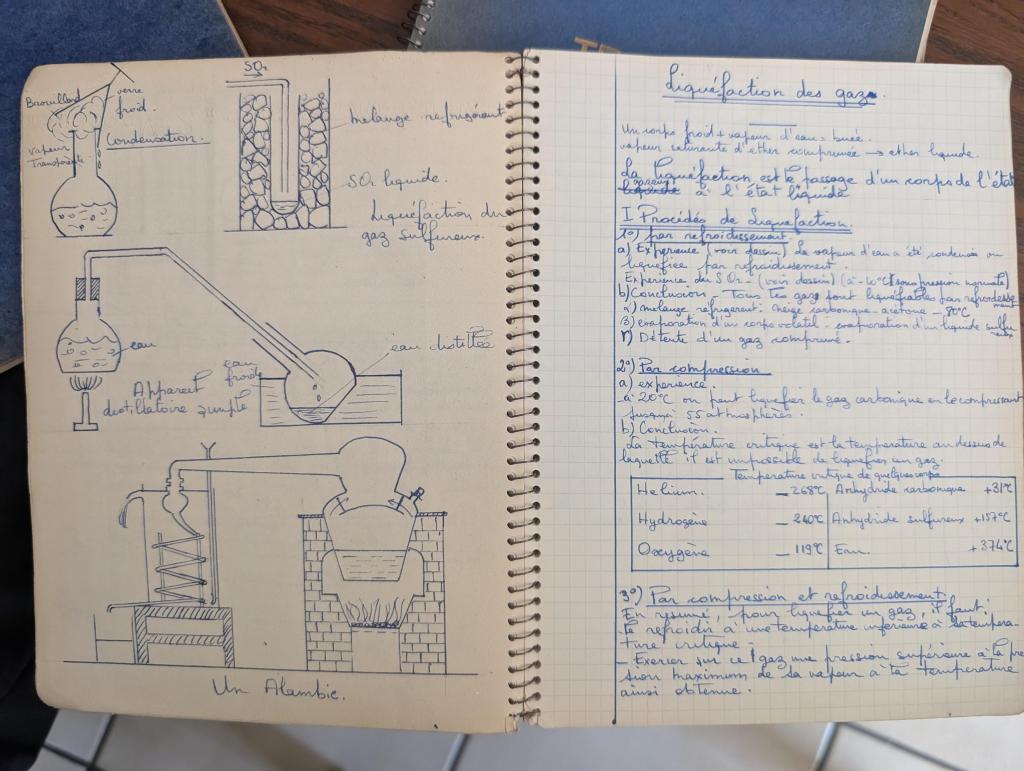 Brouillard
verre
froid.
Condensation.
vapeur
Transparente
SO2
mélange refrigérant
SO2 liquide.
Liquéfaction du
gaz sulfureux.
eau
eau distillée
eau
froide
Appareil
distillatoire simple
Un Alambic.
Liquéfaction des gaz.
Un corps froid + vapeur d'eau = buée.
vapeur saturante d'ether comprimée → ether liquide.
La liquéfaction est le passage d'un corps de l'état
gazeux
liquide à l'état liquide
I Procédés de Liquefaction.
1°) par refroidissement
a) Expérience (voir dessin) La vapeur d'eau a été condensée ou
liquefiée par refroidissement.
Experience du SO2 - (voir dessin) (à -10°C sous pression normale)
b) Conclusion - Tous les gaz sont liquéfiables par refroidisse
ment
α) melange réfrigerant : neige carbonique - acétone - 80°C
β) evaporation d'un corps volatil : evaporation d'un liquide sulfu
reux
γ) Détente d'un gaz comprimé.
2°) Par compression
a) experience.
à 20°C on peut liquefier le gaz carbonique en le compressant
jusqu'à 55 atmosphères.
b) Conclusion.
La température critique est la temperature au dessus de
laquelle il est impossible de liquefier un gaz.
Temperature critique de quelques corps
Helium. - 268°C Anhydride carbonique +31°C
Hydrogène - 240°C Anhydride sulfureux +157°C
Oxygène - 119°C Eau. +374°C
3°) Par compression et refroidissement.
En résumé, pour liquefier un gaz, il faut :
- le refroidir à une température inferieure à sa tempera-
ture critique
- Exercer sur ce gaz une pression supérieure à la pre
ssion maximum de sa vapeur à la temperature
ainsi obtenue.